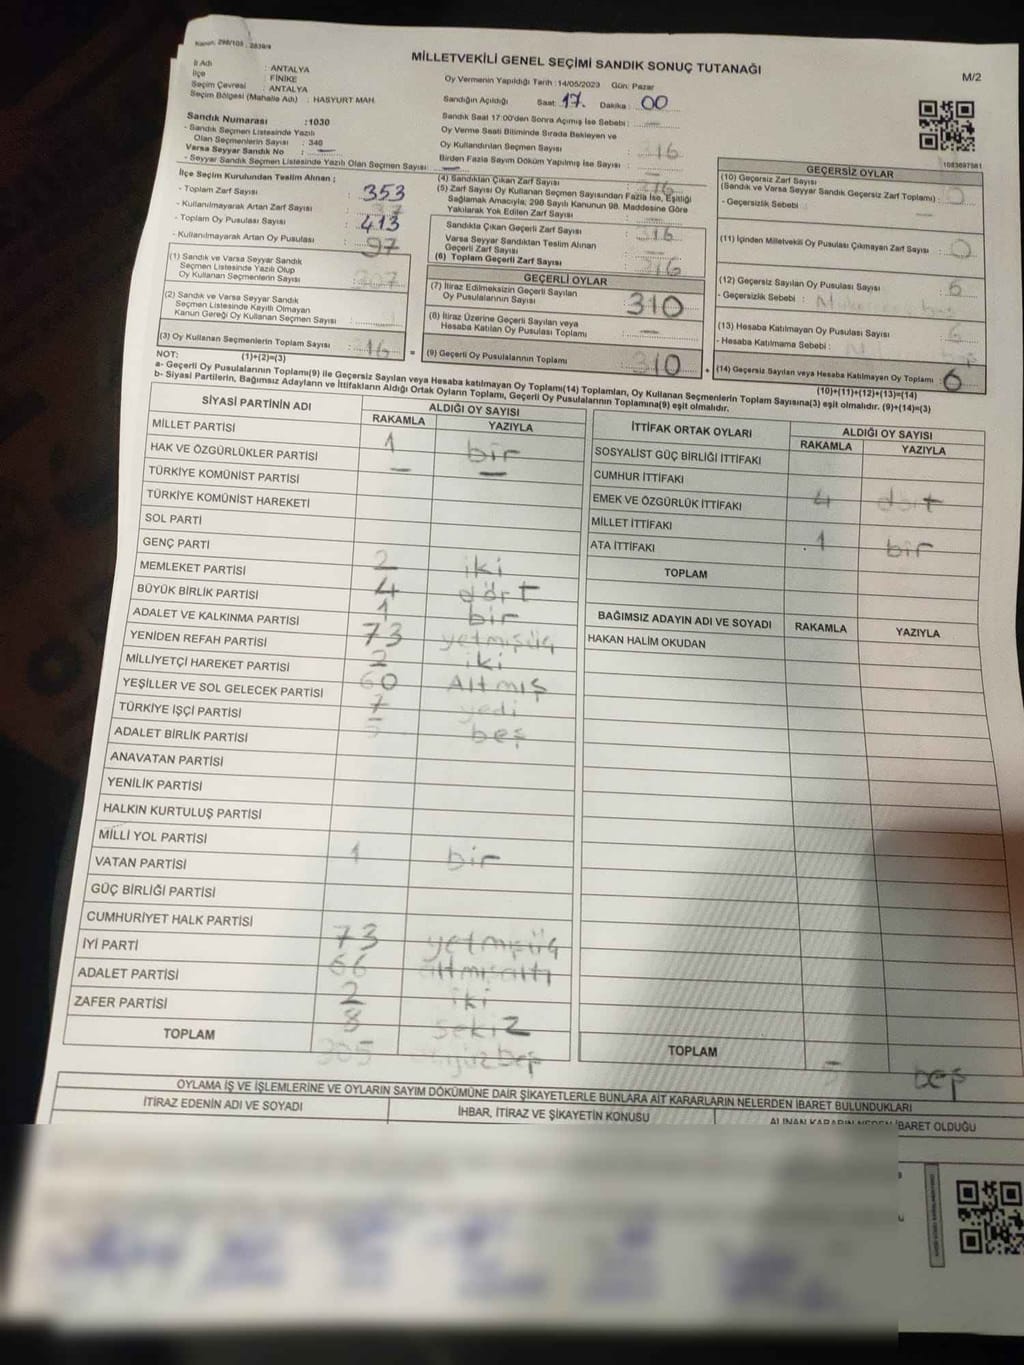 Kanun: 298/105 - 2839/9
MİLLETVEKİLİ GENEL SEÇİMİ SANDIK SONUÇ TUTANAĞI
M/2
İl Adı : ANTALYA
İlçe : FİNİKE
Seçim Çevresi : ANTALYA
Seçim Bölgesi (Mahalle Adı) : HASYURT MAH.
Oy Vermenin Yapıldığı Tarih : 14/05/2023 Gün: Pazar
Sandığın Açıldığı Saat: 17. Dakika : 00
Sandık Saat 17:00'den Sonra Açımış İse Sebebi : —
Oy Verme Saati Bitiminde Sırada Bekleyen ve
Oy Kullandırılan Seçmen Sayısı : 316
Birden Fazla Sayım Döküm Yapılmış İse Sayısı : —
Sandık Numarası :1030
- Sandık Seçmen Listesinde Yazılı
Olan Seçmenlerin Sayısı : 340
Varsa Seyyar Sandık No : —
- Seyyar Sandık Seçmen Listesinde Yazılı Olan Seçmen Sayısı: —
İlçe Seçim Kurulundan Teslim Alınan ;
- Toplam Zarf Sayısı : 353
- Kullanılmayarak Artan Zarf Sayısı : 37
- Toplam Oy Pusulası Sayısı : 413
- Kullanılmayarak Artan Oy Pusulası : 97
(1) Sandık ve Varsa Seyyar Sandık
Seçmen Listesinde Yazılı Olup
Oy Kullanan Seçmenlerin Sayısı : 307
(2) Sandık ve Varsa Seyyar Sandık
Seçmen Listesinde Kayıtlı Olmayan
Kanun Gereği Oy Kullanan Seçmen Sayısı :
(3) Oy Kullanan Seçmenlerin Toplam Sayısı : 16
(1)+(2)=(3)
(4) Sandıktan Çıkan Zarf Sayısı : 316
(5) Zarf Sayısı Oy Kullanan Seçmen Sayısından Fazla İse, Eşitliği
Sağlamak Amacıyla; 298 Sayılı Kanunun 98. Maddesine Göre
Yakılarak Yok Edilen Zarf Sayısı : —
Sandıkta Çıkan Geçerli Zarf Sayısı : 316
Varsa Seyyar Sandıktan Teslim Alınan
Geçerli Zarf Sayısı : —
(6) Toplam Geçerli Zarf Sayısı : 316
GEÇERLİ OYLAR
(7) İtiraz Edilmeksizin Geçerli Sayılan
Oy Pusulalarının Sayısı : 310
(8) İtiraz Üzerine Geçerli Sayılan veya
Hesaba Katılan Oy Pusulası Toplamı : —
= (9) Geçerli Oy Pusulalarının Toplamı : 310
1083697981
GEÇERSİZ OYLAR
(10) Geçersiz Zarf Sayısı
(Sandık ve Varsa Seyyar Sandık Geçersiz Zarf Toplamı) : 0
- Geçersizlik Sebebi : —
(11) İçinden Milletvekili Oy Pusulası Çıkmayan Zarf Sayısı : 0
(12) Geçersiz Sayılan Oy Pusulası Sayısı : 6
- Geçersizlik Sebebi :
(13) Hesaba Katılmayan Oy Pusulası Sayısı : 6
- Hesaba Katılmama Sebebi :
+ (14) Geçersiz Sayılan veya Hesaba Katılmayan Oy Toplamı : 6
(10)+(11)+(12)+(13)=(14)
NOT:
a- Geçerli Oy Pusulalarının Toplamı(9) ile Geçersiz Sayılan veya Hesaba katılmayan Oy Toplamı(14) Toplamları, Oy Kullanan Seçmenlerin Toplam Sayısına(3) eşit olmalıdır. (9)+(14)=(3)
b- Siyasi Partilerin, Bağımsız Adayların ve İttifakların Aldığı Ortak Oyların Toplamı, Geçerli Oy Pusulalarının Toplamına(9) eşit olmalıdır.
SİYASİ PARTİNİN ADI
ALDIĞI OY SAYISI
RAKAMLA YAZIYLA
MİLLET PARTİSİ 1 bir
HAK VE ÖZGÜRLÜKLER PARTİSİ — —
TÜRKİYE KOMÜNİST PARTİSİ
TÜRKİYE KOMÜNİST HAREKETİ
SOL PARTİ
GENÇ PARTİ 2 iki
MEMLEKET PARTİSİ 4 dört
BÜYÜK BİRLİK PARTİSİ 1 bir
ADALET VE KALKINMA PARTİSİ 73 yetmişüç
YENİDEN REFAH PARTİSİ 2 iki
MİLLİYETÇİ HAREKET PARTİSİ 60 Altmış
YEŞİLLER VE SOL GELECEK PARTİSİ 7 yedi
TÜRKİYE İŞÇİ PARTİSİ 5 beş
ADALET BİRLİK PARTİSİ
ANAVATAN PARTİSİ
YENİLİK PARTİSİ
HALKIN KURTULUŞ PARTİSİ
MİLLİ YOL PARTİSİ 1 bir
VATAN PARTİSİ
GÜÇ BİRLİĞİ PARTİSİ
CUMHURİYET HALK PARTİSİ 73 yetmişüç
İYİ PARTİ 66 altmışaltı
ADALET PARTİSİ 2 iki
ZAFER PARTİSİ 8 Sekiz
TOPLAM 305 üçyüzbeş
İTTİFAK ORTAK OYLARI
ALDIĞI OY SAYISI
RAKAMLA YAZIYLA
SOSYALİST GÜÇ BİRLİĞİ İTTİFAKI
CUMHUR İTTİFAKI 4 dört
EMEK VE ÖZGÜRLÜK İTTİFAKI
MİLLET İTTİFAKI 1 bir
ATA İTTİFAKI
TOPLAM
BAĞIMSIZ ADAYIN ADI VE SOYADI RAKAMLA YAZIYLA
HAKAN HALİM OKUDAN
TOPLAM 5 beş
OYLAMA İŞ VE İŞLEMLERİNE VE OYLARIN SAYIM DÖKÜMÜNE DAİR ŞİKAYETLERLE BUNLARA AİT KARARLARIN NELERDEN İBARET BULUNDUKLARI
İTİRAZ EDENİN ADI VE SOYADI
İHBAR, İTİRAZ VE ŞİKAYETİN KONUSU
ALINAN KARARIN NEDEN İBARET OLDUĞU